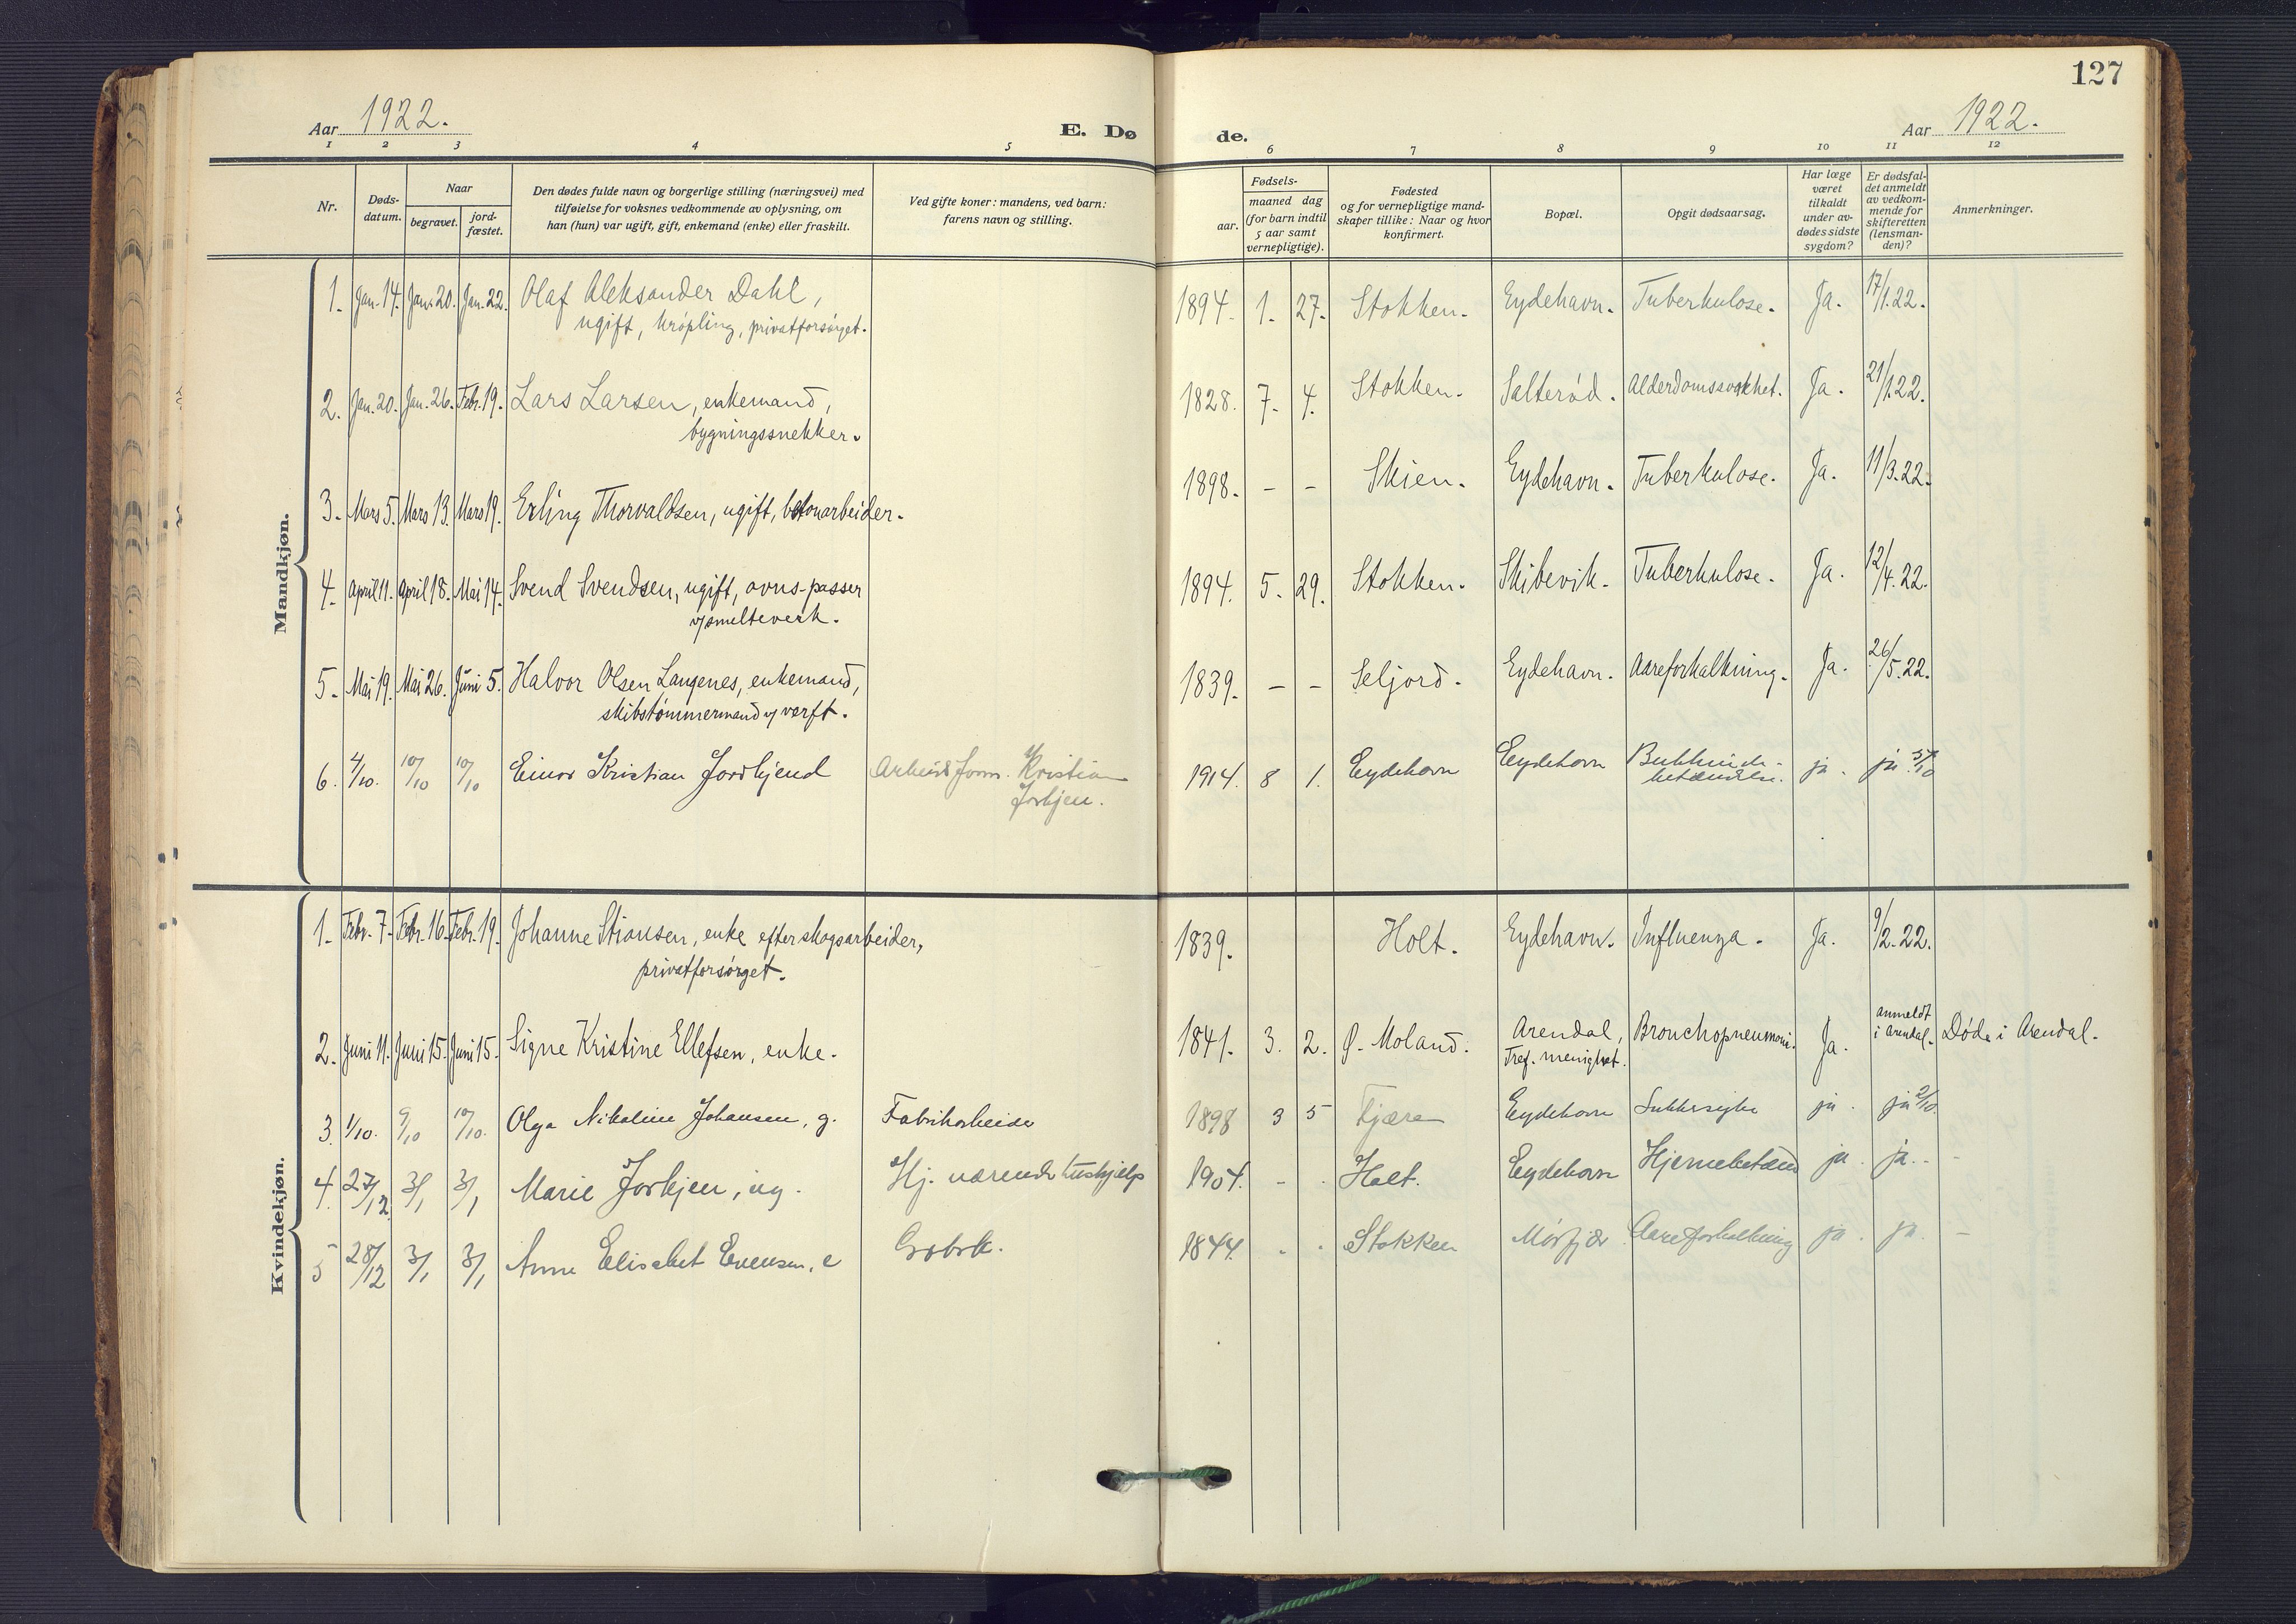 127
Aar 1922.
E. Dø
de.
Aar 1922.
1 2 3 4 5 6 7 8 9 10 11 12
Nr.
Døds-
datum.
Naar
begravet.
jord-
fæstet.
Den dødes fulde navn og borgerlige stilling (næringsvei) med
tilføielse for voksnes vedkommende av oplysning, om
han (hun) var ugift, gift, enkemand (enke) eller fraskilt.
Ved gifte koner: mandens, ved barn:
farens navn og stilling.
Fødsels-
aar.
maaned dag
(for barn indtil
5 aar samt
vernepligtige).
Fødested
og for vernepligtige mand-
skaper tillike: Naar og hvor
konfirmert.
Bopæl.
Opgit dødsaarsag.
Har læge
været
tilkaldt
under av-
dødes sidste
sygdom?
Er dødsfal-
det anmeldt
av vedkom-
mende for
skifteretten
(lensman-
den)?
Anmerkninger.
Mandkjøn.
1. Jan. 14. Jan. 20. Jan. 22. Olaf Aleksander Dahl, 1894. 1. 27. Stokken. Eydehavn. Tuberkulose. Ja. 17/1.22.
ugift, krøpling, privatforsørget.
2. Jan. 20. Jan. 26. Febr. 19. Lars Larsen, enkemand, 1828. 7. 4. Stokken. Salterød. Alderdomssvakhet. Ja. 21/1.22.
bygningssnekker.
3. Mars 5. Mars 13. Mars 19. Erling Thorvaldsen, ugift, betonarbeider. 1898. - - Skien. Eydehavn. Tuberkulose. Ja. 11/3.22.
4. April 11. April 18. Mai 14. Svend Svendsen, ugift, ovns-passer 1894. 5. 29. Stokken. Skibevik. Tuberkulose. Ja. 12/4.22.
v/smelteverk.
5. Mai 19. Mai 26. Juni 5. Halvor Olsen Langenes, enkemand, 1839. - - Seljord. Eydehavn. Aareforkalkning. Ja. 26/5.22.
skibstømmermand v/ verft.
6. 4/10. 10/10 10/10 Einar Kristian Jordkjend Arbeidsform. Kristian 1914. 8 1. Eydehavn Eydehavn Bukhinde- ja. ja 5/10
Jorkjen. betændelse.
Kvindekjøn.
1. Febr. 7. Febr. 16. Febr. 19. Johanne Stiansen, enke efter skogsarbeider, 1839. Holt. Eydehavn. Influenza. Ja. 9/2.22.
privatforsørget.
2. Juni 11. Juni 15. Juni 15. Signe Kristine Ellefsen, enke. 1841. 3. 2. Ø. Moland. Arendal, Bronchopneumoni. Ja. anmeldt Døde i Arendal.
Tref. menighet. i Arendal.
3. 1/10. 9/10 10/10. Olga Nikoline Johansen, g. Fabrikarbeider 1898 3 5 Fjære Eydehavn Sukkersyke ja. ja 2/10.
4. 27/12 3/1 3/1 Marie Jorkjen, ug. Hj. værende hushjælp 1904. - . Holt. Eydehavn Hjernebetænd ja. ja. -
5 28/12 3/1 3/1 Anne Elisabet Evensen, e Grbrk. 1844. . . Stokken Mørfjær Aareforkalkning ja. ja. -